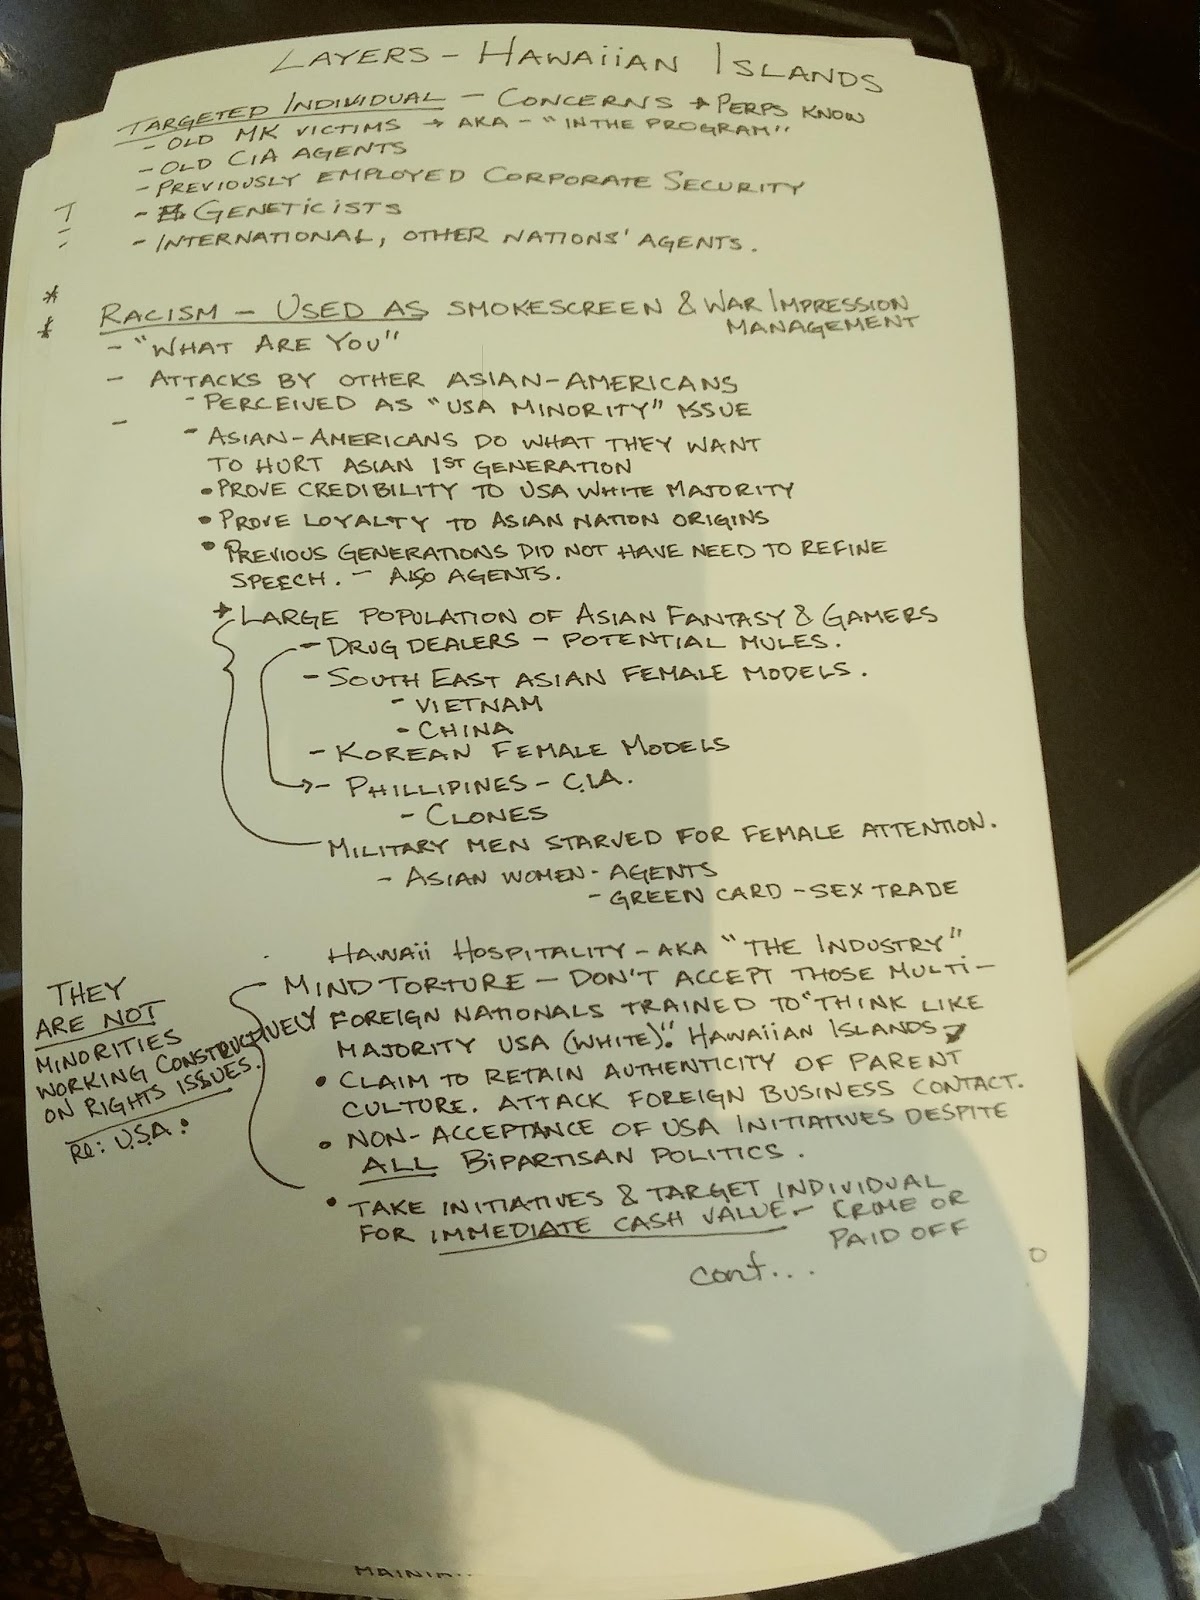 LAYERS – HAWAIIAN ISLANDS
TARGETED INDIVIDUAL – CONCERNS → PERPS KNOW
- OLD MK VICTIMS → AKA - "IN THE PROGRAM"
- OLD CIA AGENTS
- PREVIOUSLY EMPLOYED CORPORATE SECURITY
- GENETICISTS
- INTERNATIONAL, OTHER NATIONS' AGENTS.
*
*
RACISM – USED AS SMOKESCREEN & WAR IMPRESSION
MANAGEMENT
- "WHAT ARE YOU"
- ATTACKS BY OTHER ASIAN-AMERICANS
- PERCEIVED AS "USA MINORITY" ISSUE
-
- ASIAN-AMERICANS DO WHAT THEY WANT
TO HURT ASIAN 1ST GENERATION
• PROVE CREDIBILITY TO USA WHITE MAJORITY
• PROVE LOYALTY TO ASIAN NATION ORIGINS
• PREVIOUS GENERATIONS DID NOT HAVE NEED TO REFINE
SPEECH. – ALSO AGENTS.
→ LARGE POPULATION OF ASIAN FANTASY & GAMERS
- DRUG DEALERS – POTENTIAL MULES.
- SOUTH EAST ASIAN FEMALE MODELS.
- VIETNAM
- CHINA
- KOREAN FEMALE MODELS
- PHILLIPINES – C.I.A.
- CLONES
MILITARY MEN STARVED FOR FEMALE ATTENTION.
- ASIAN WOMEN - AGENTS
- GREEN CARD – SEX TRADE
HAWAII HOSPITALITY – AKA "THE INDUSTRY"
MIND TORTURE – DON'T ACCEPT THOSE MULTI-
FOREIGN NATIONALS TRAINED TO "THINK LIKE
MAJORITY USA (WHITE)". HAWAIIAN ISLANDS
• CLAIM TO RETAIN AUTHENTICITY OF PARENT
CULTURE. ATTACK FOREIGN BUSINESS CONTACT.
• NON-ACCEPTANCE OF USA INITIATIVES DESPITE
ALL BIPARTISAN POLITICS.
• TAKE INITIATIVES & TARGET INDIVIDUAL
FOR IMMEDIATE CASH VALUE – CRIME OR
PAID OFF
cont...
THEY
ARE NOT
MINORITIES
WORKING CONSTRUCTIVELY
ON RIGHTS ISSUES.
RE: U.S.A.